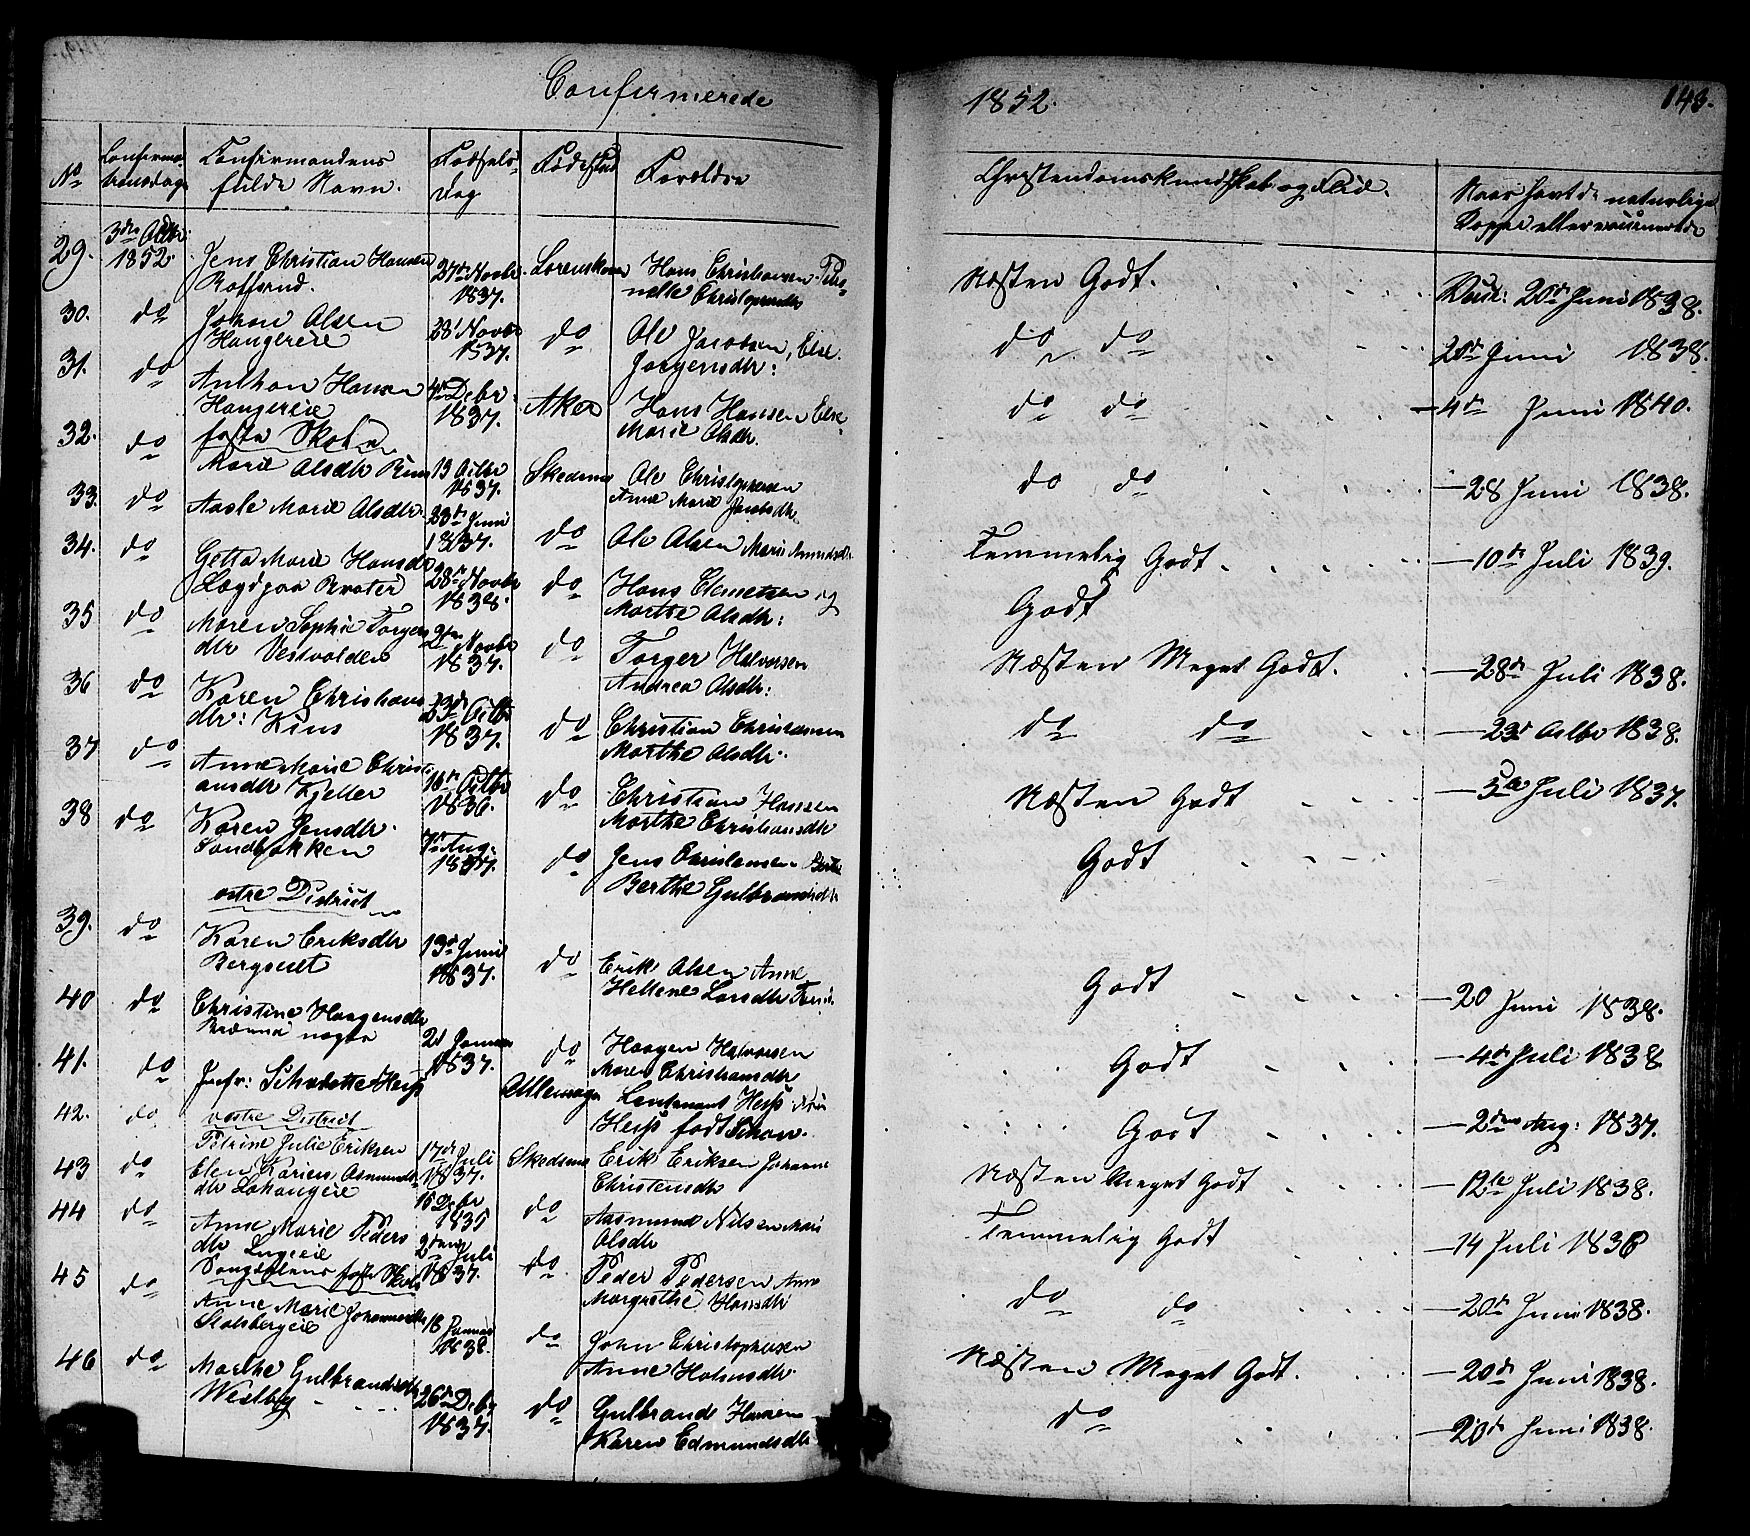 Confirmerede
1852.
143.
No
Confirma-
tionsdag
Confirmandens
fulde Navn.
Fødsels-
dag
Fødested
Forældre
Christendomskundskab og Flid.
Naar havt de naturlige
Kopper eller vaccinerede
29. 3die Octbr 1852. Jens Christian Hansen 27de Novbr Lorenskoven Hans Christiansen Petro-
1837. nelle Christophersdtr
Næsten Godt. Vacc: 20de Juni 1838.
30. do Johan Olsen 28 Novbr do Ole Jacobsen, Else
Haugereie 1837. Jørgensdtr:
do do 20de Juni 1838.
31. do Anthon Hansen 4de Debr Aker Hans Hansen Else
Haugereie 1837. Marie Olsdtr.
do do — 4de Juni 1840.
faste Skole
32. do Marie Olsdtr 13 Octbr Skedsmo Ole Christophersen
1837. Anne Marie Jacobsdtr
do do — 28 Juni 1838.
33. do Aasle Marie Olsdtr. 23de Juni do Ole Olsen Marie Amundsdtr
1837.
Temmelig Godt. — 10de Juli 1839.
34. do Gette Marie Hansdtr 28de Novbr do Hans Clemetsen og
1838. Marthe Olsdtr:
Godt
35 do Maren Sophie Torgers 2den Novbr do Torger Halvorsen
dtr Vestvolden 1837. Andrea Olsdtr:
Næsten Meget Godt. — 28de Juli 1838.
36 do Karen Christians 23de Octbr do Christian Christiansen
dtr: 1837. Marthe Olsdtr.
do do — 23de Octbr 1838.
37 do Anne Marie Christi- 16de Octbr do Christian Hansen
ansdtr Kjeller 1836. Marthe Christiansdtr
Næsten Godt — 5te Juli 1837.
38 do Karen Jensdtr. 7de Aug. do Jens
Sandbakken 1837. Berthe Gulbrandsdtr
Godt
østre District
39. do Karen Eriksdtr 13de Juni do Erik Olsen Anne
1837. Hellene Larsdtr
Godt — 20 Juni 1838.
40 do Christine Haagensdtr 21 Januar do Haagen Halvorsen
1837. Maren Christiansdtr
Godt — 4de Juli 1838
41. do Jnfr: Charlotte Heys Lieutenant Heys
Heys født
Godt — 2den Aug: 1837.
vestre District
42. do Petrine Julie Eriksen 17de Juli Skedsmo Erik Eriksen Johanne
1837. Christensdtr
Næsten Meget Godt — 12te Juli 1838.
43 do Elen Karine Asmunds- 15 Debr do Aasmund Nilsen Mari
dtr 1835 Olsdtr
Temmelig Godt — 14 Juli 1836
44 do Anne Marie Peders 2den Juli do Peder Pedersen Anne
dtr 1837. Margrethe Hansdtr
do do — 20de Juni 1838.
faste Skole
45 do Anne Marie Johannesdtr 18 Januar do John Christophersen
1838. Anne
Næsten Meget Godt. — 20de Juni 1838.
46 do Marthe Gulbrandsdtr 26de Debr do Gulbrand Hansen
Westbye 1837. Karen Edmundsdtr
do — 20de Juni 1838.